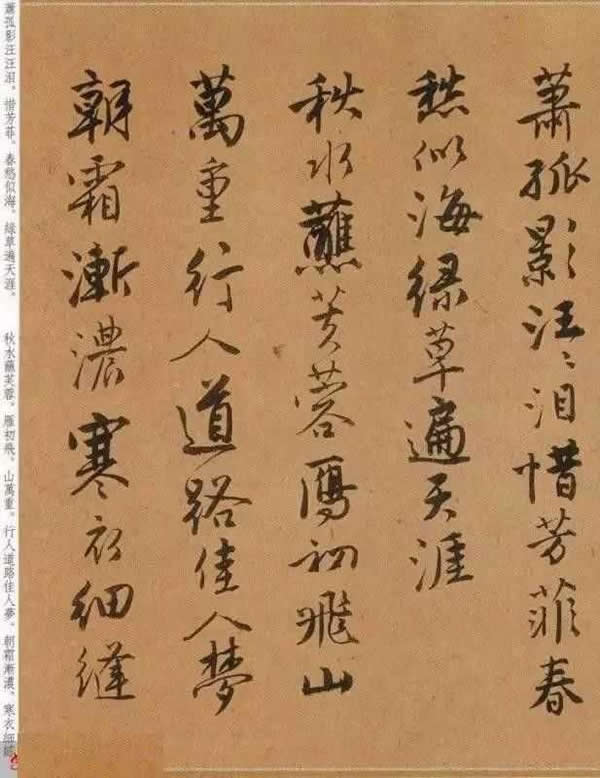 蕭孤影汪汪泪惜芳菲春
愁似海绿草遍天涯
秋水蘸芙蓉鴈初飛山
萬重行人道路佳人夢
朝霜漸濃寒衣細縫
蕭孤影汪汪泪。惜芳菲。春愁似海。緑草遍天涯。 秋水蘸芙蓉。雁初飛。山萬重。行人道路佳人夢。朝霜漸濃、寒衣細縫